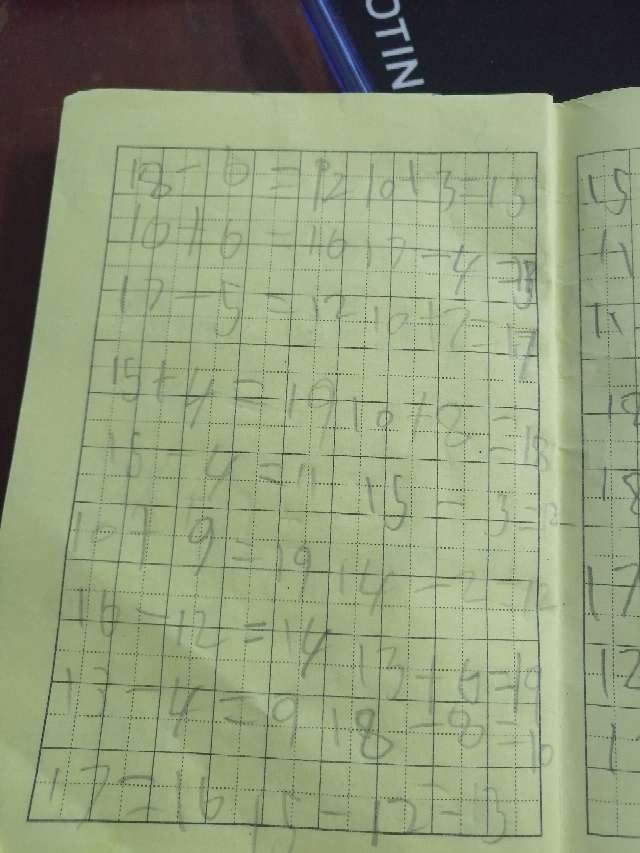 OTIN
18-6=12 10+3=13
10+6=16 17-4=13
17-5=12 10+7=17
15+4=19 10+8=18
15-4=11 15-3=12
10+9=19 14-2=12
16-12=14 13+6=19
13-4=9 18-8=10
15-12=13
15
11
11
18
18
17
12